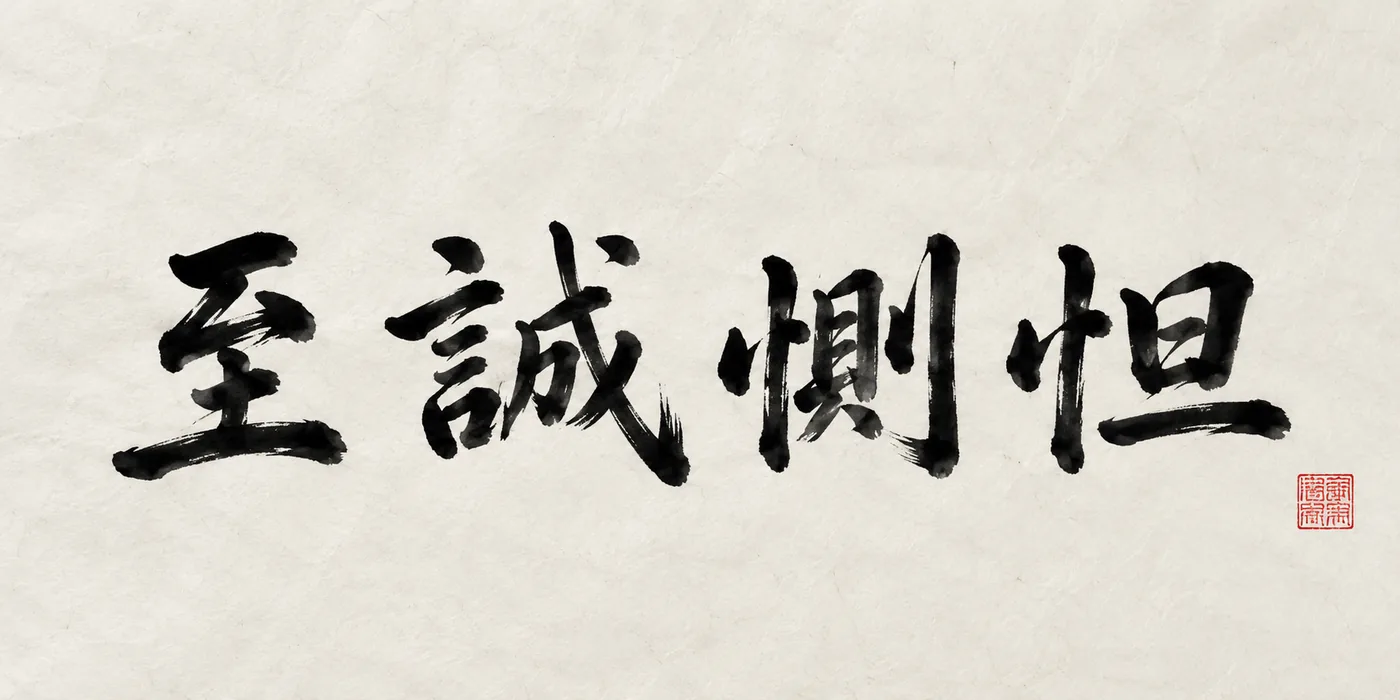 至誠惻怛